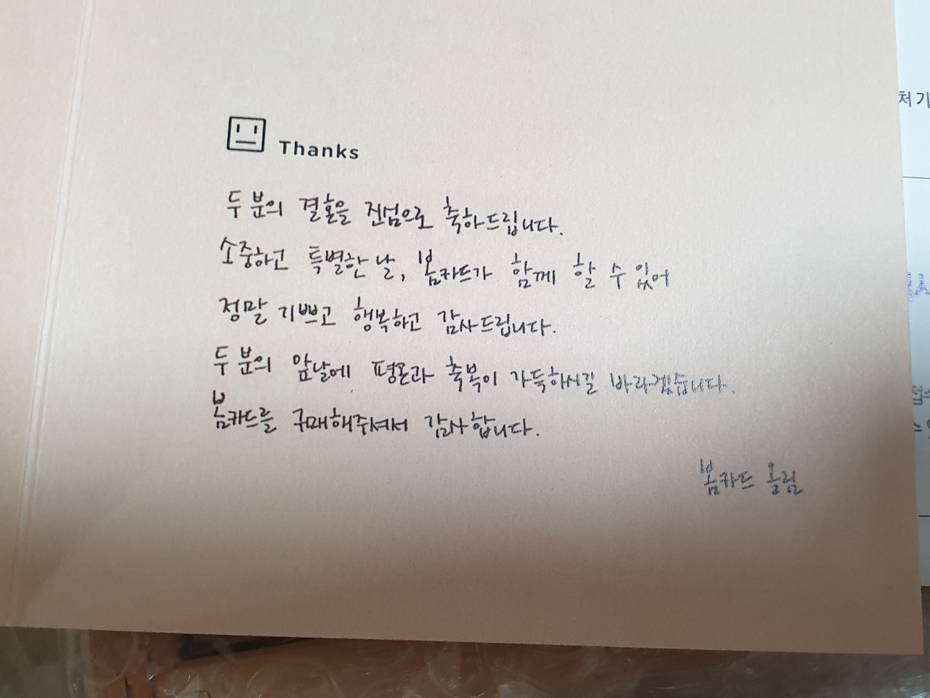 Thanks
두 분의 결혼을 진심으로 축하드립니다.
소중하고 특별한 날, 봄카드가 함께 할 수 있어
정말 기쁘고 행복하고 감사드립니다.
두 분의 앞날에 평온과 축복이 가득하시길 바라겠습니다.
봄카드를 구매해주셔서 감사합니다.
봄카드 올림
처 기